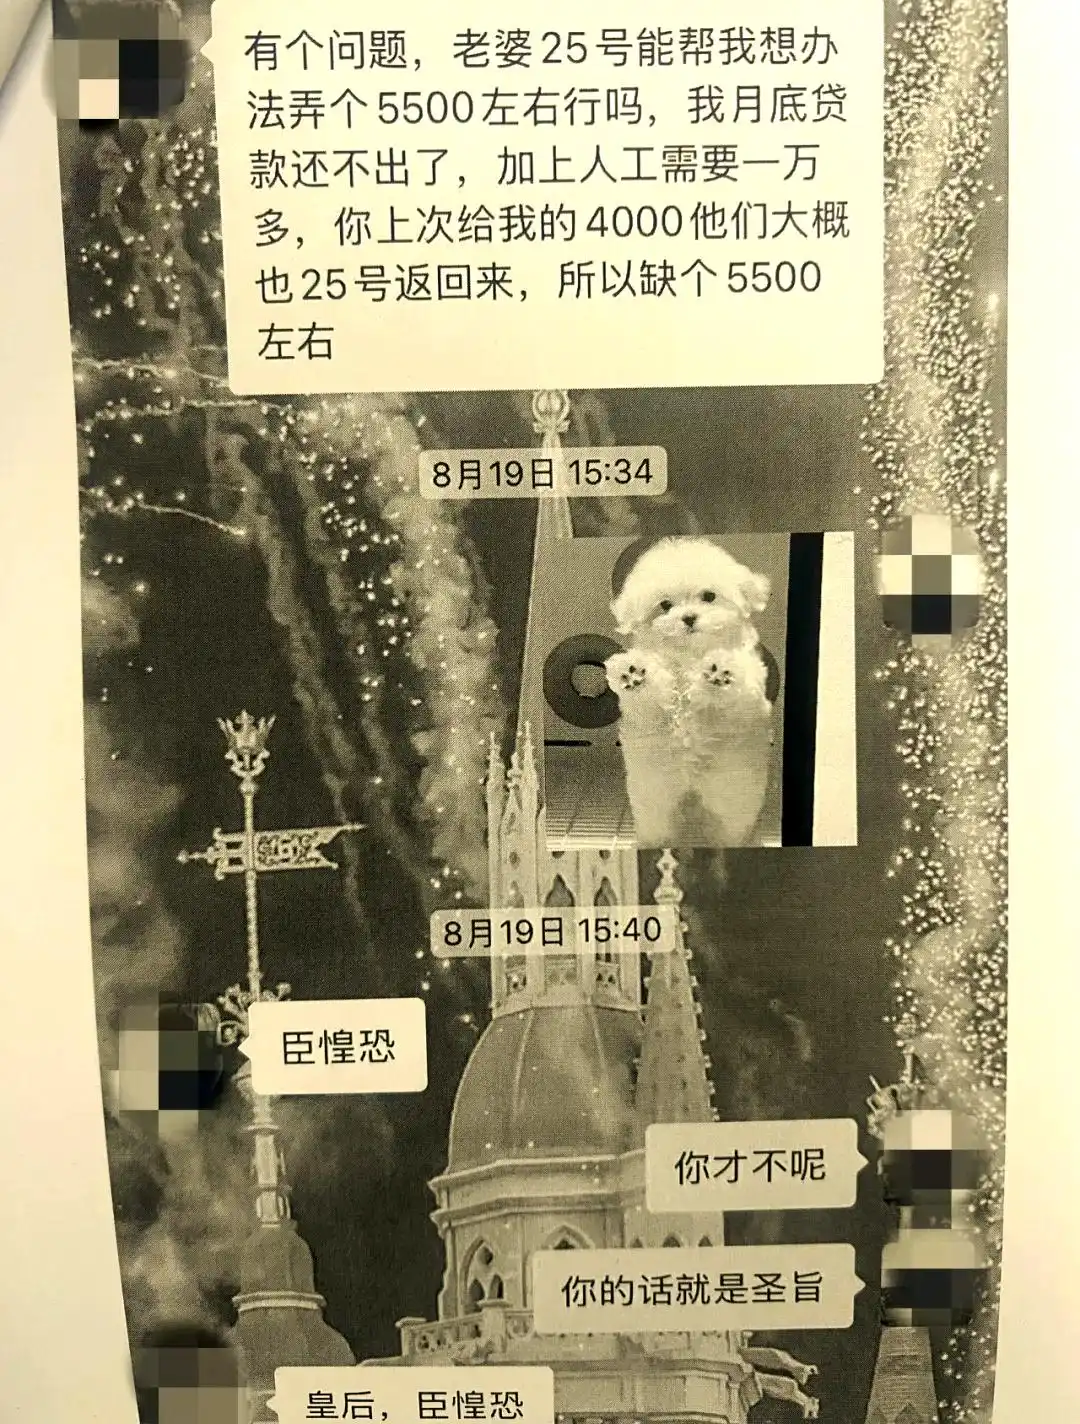 有个问题，老婆25号能帮我想办
法弄个5500左右行吗，我月底贷
款还不出了，加上人工需要一万
多，你上次给我的4000他们大概
也25号返回来，所以缺个5500
左右
8月19日 15:34
8月19日 15:40
臣惶恐
你才不呢
你的话就是圣旨
皇后，臣惶恐